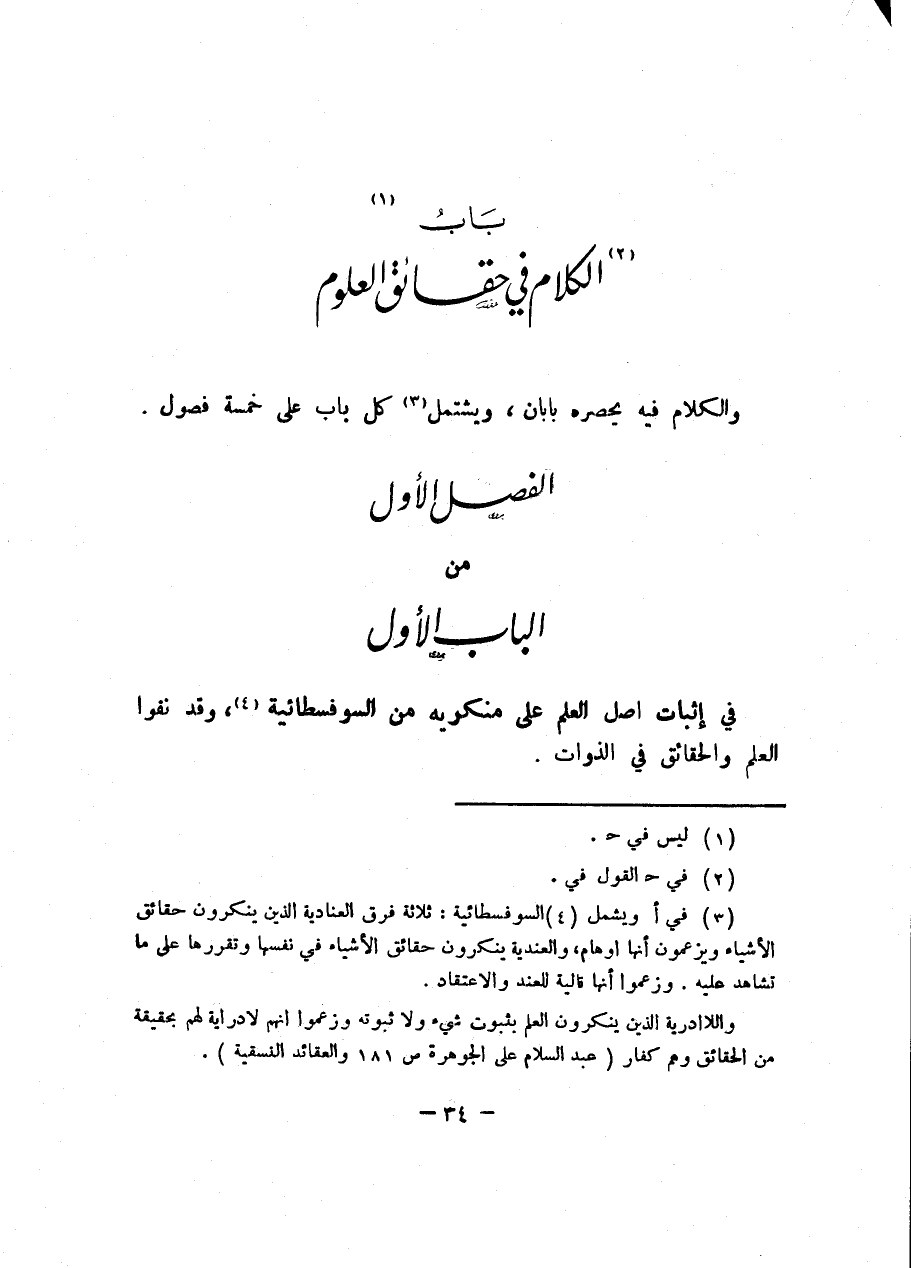 بَابُ (١)
(٢) الكلام في حقائق العلوم
والكلام فيه يحصره بابان ، ويشتمل(٣) كل باب على خمسة فصول .
الفصل الأول
من
الباب الأول
في إثبات اصل العلم على منكريه من السوفسطائية (٤)، وقد نفوا
العلم والحقائق في الذوات .
(١) ليس في حـ .
(٢) في حـ القول في .
(٣) في أ ويشمل (٤)السوفسطائية : ثلاثة فرق العنادية الذين ينكرون حقائق
الأشياء ويزعمون أنها اوهام، والعندية ينكرون حقائق الأشياء في نفسها وتقررها على ما
تشاهد عليه . وزعموا أنها تالية للعند والاعتقاد .
واللاادرية الذين ينكرون العلم بثبوت شيء ولا ثبوته وزعموا انهم لادراية لهم بحقيقة
من الحقائق وهم كفار ( عبد السلام على الجوهرة ص ١٨١ والعقائد النسقية ) .
– ٣٤ –